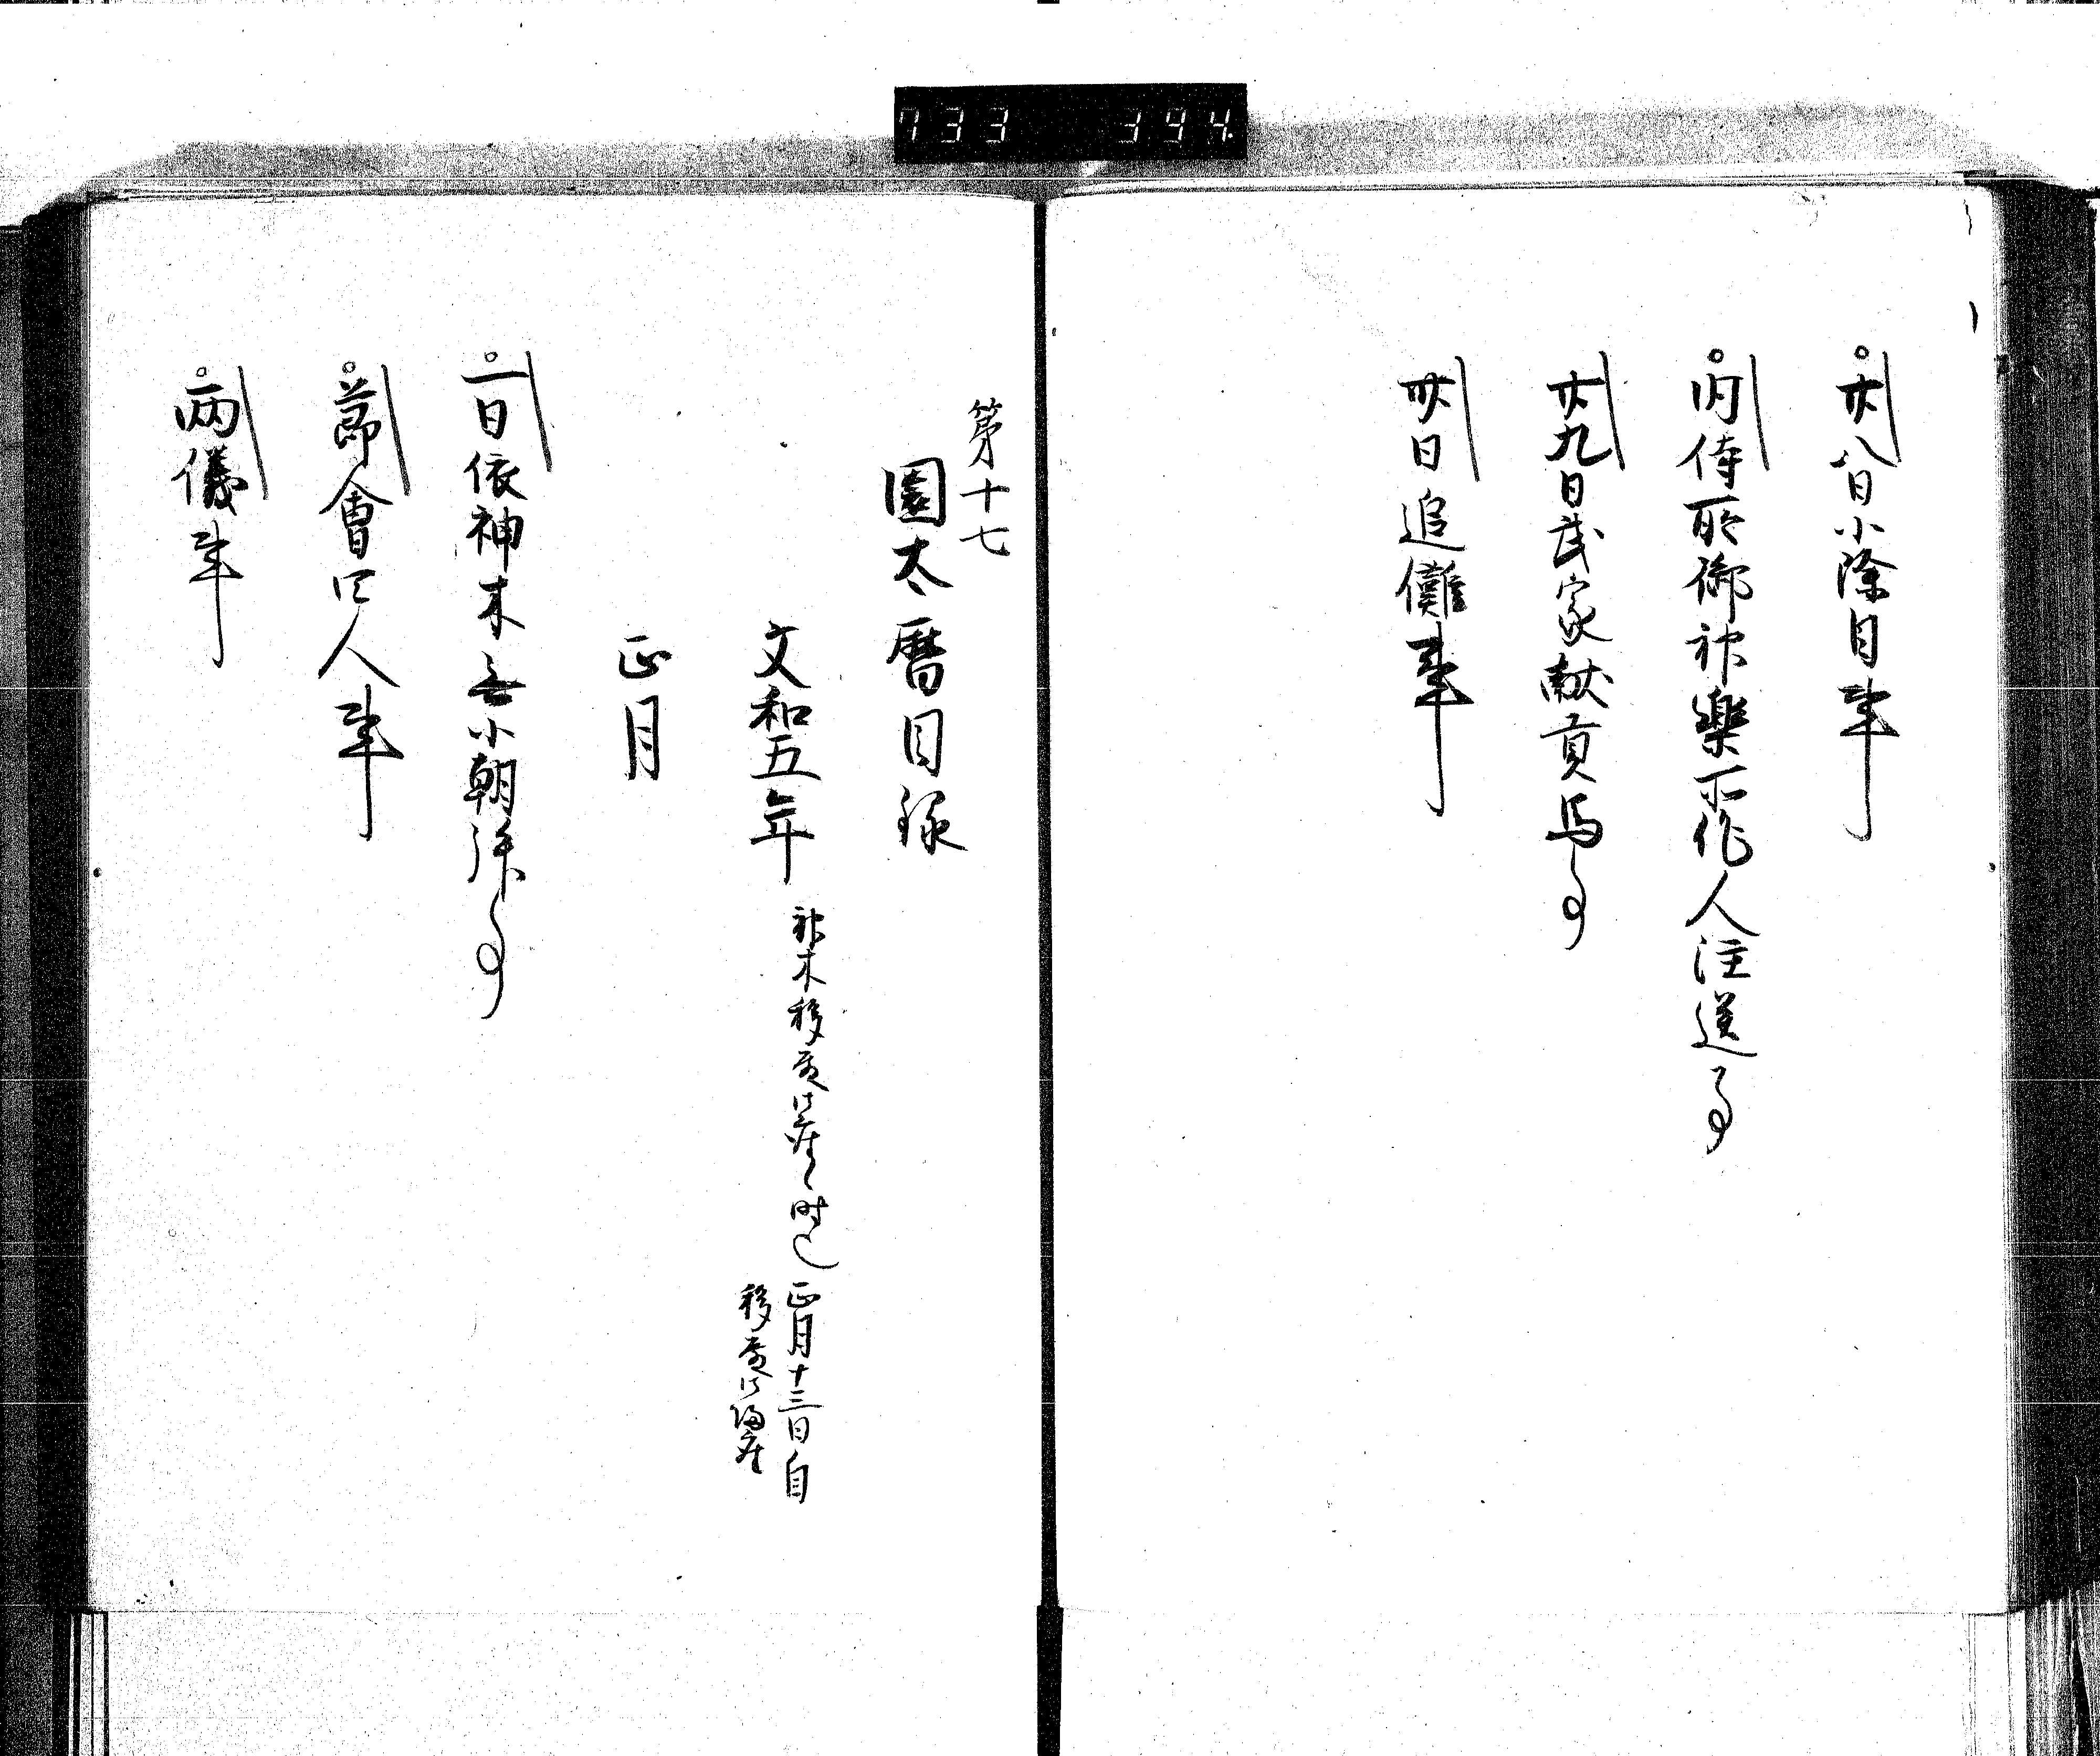 733 394
廿八日小除目事
内侍所御神樂所作人注進事
廿九日武家献貢馬事
卅日追儺事
第十七
園太暦目録
文和五年 神木移殿御座之時也 正月十三日自
移殿御帰座
正月
一日依神木無小朝拝事
節會四人事
両儀事